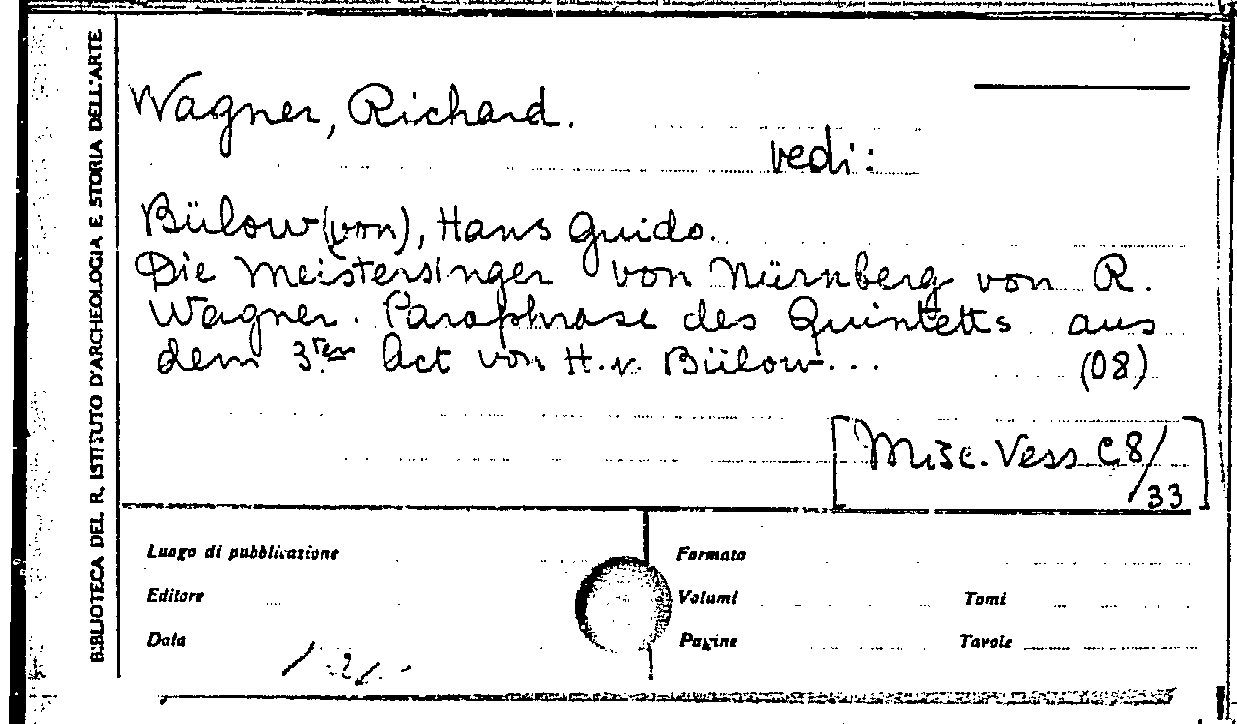 BIBLIOTECA DEL R. ISTITUTO D'ARCHEOLOGIA E STORIA DELL'ARTE
Wagner, Richard.
vedi:
Bülow (von), Hans Guido.
Die Meistersinger von Nürnberg von R.
Wagner. Paraphrase des Quintetts aus
dem 3.ten Act von H.v. Bülow...
(08)
[Misc. Vess C8/
33]
Luogo di pubblicazione
Editore
Data
Formato
Volumi
Tomi
Pagine
Tavole